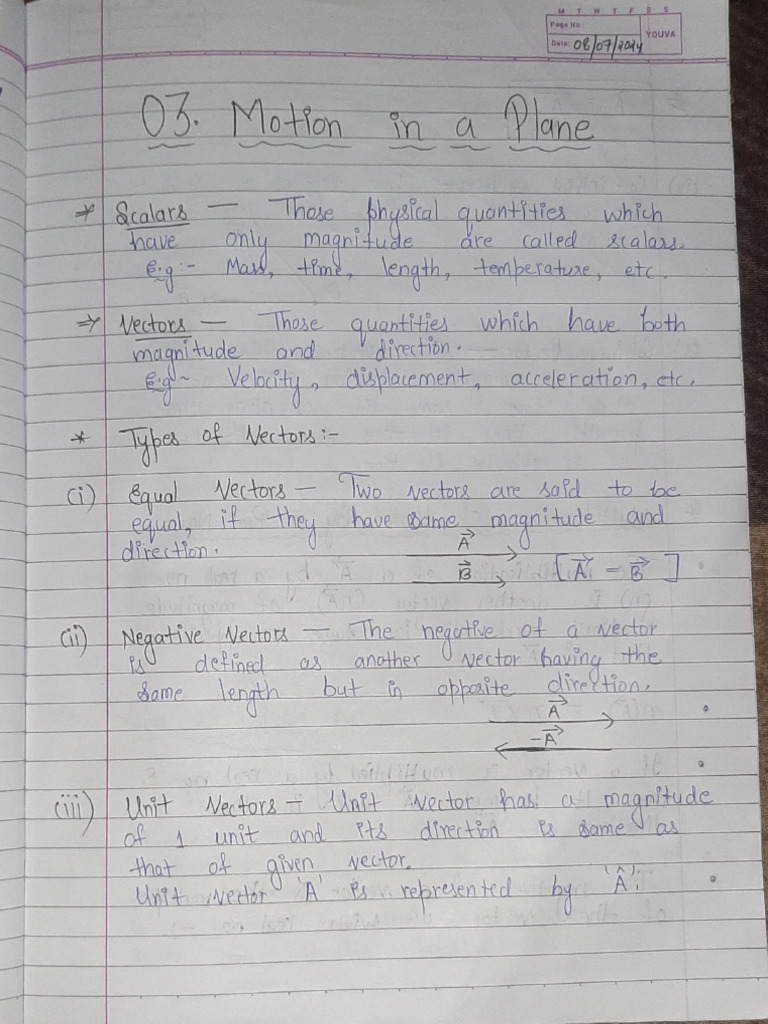 M T W T F S S
Page No.:
Date: 08/07/2024
YOUVA
03. Motion in a Plane
* Scalars — Those physical quantities which
have only magnitude are called scalars.
e.g - Mass, time, length, temperature, etc.
→ Vectors — Those quantities which have both
magnitude and direction.
e.g - Velocity, displacement, acceleration, etc.
* Types of Vectors :-
(i) Equal Vectors — Two vectors are said to be
equal, if they have same magnitude and
direction.
A⃗
B⃗ [A⃗ = B⃗]
(ii) Negative Vectors — The negative of a vector
is defined as another vector having the
same length but in opposite direction.
A⃗
-A⃗
(iii) Unit Vectors — Unit vector has a magnitude
of 1 unit and its direction is same as
that of given vector.
Unit vector 'A' is represented by 'Â'.